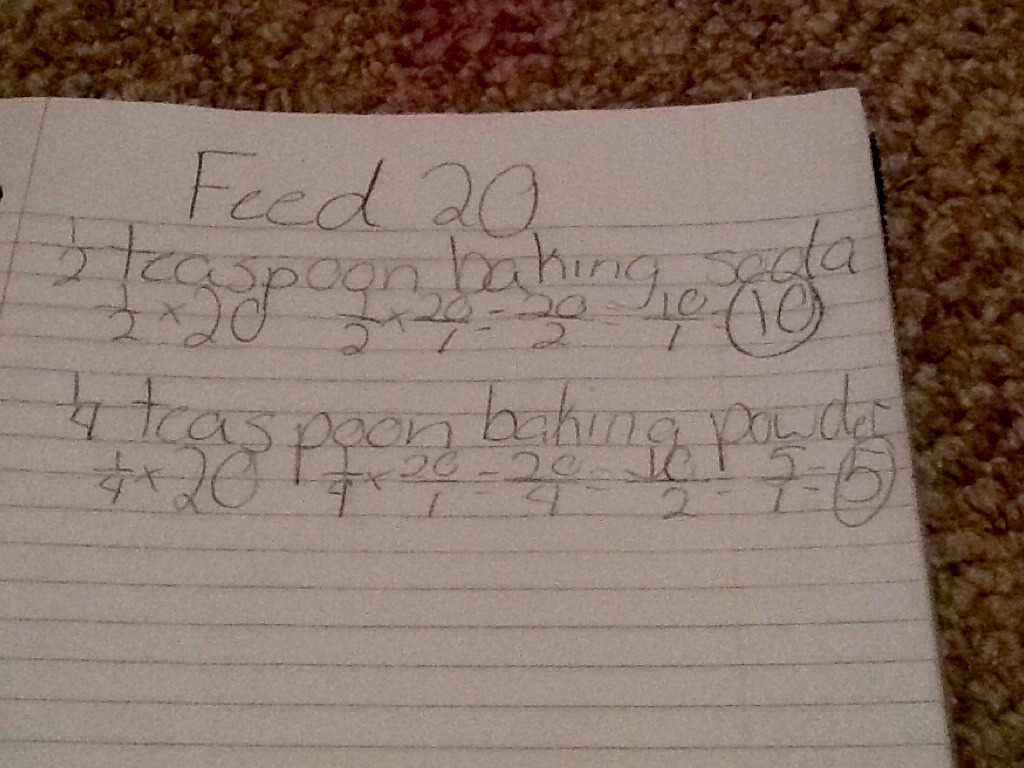 Feed 20
1/2 teaspoon baking soda
1/2 × 20 1/2 × 20/1 = 20/2 = 10/1 = 10
1/4 teaspoon baking powder
1/4 × 20 1/4 × 20/1 = 20/4 = 10/2 = 5/1 = 5